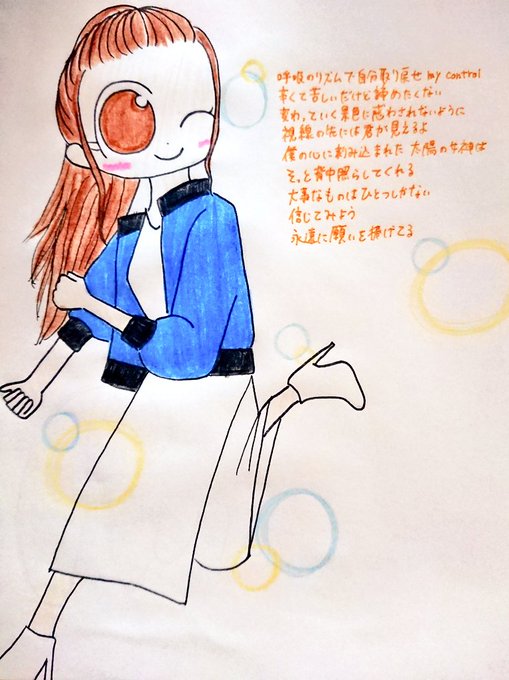 呼吸のリズムで自分取り戻せ my control
辛くて苦しいだけど諦めたくない
変わっていく景色に惑わされないように
視線の先には君が見えるよ
僕の心に刻み込まれた 太陽の女神は
そっと背中照らしてくれる
大事なものはひとつしかない
信じてみよう
永遠に願いを捧げてる